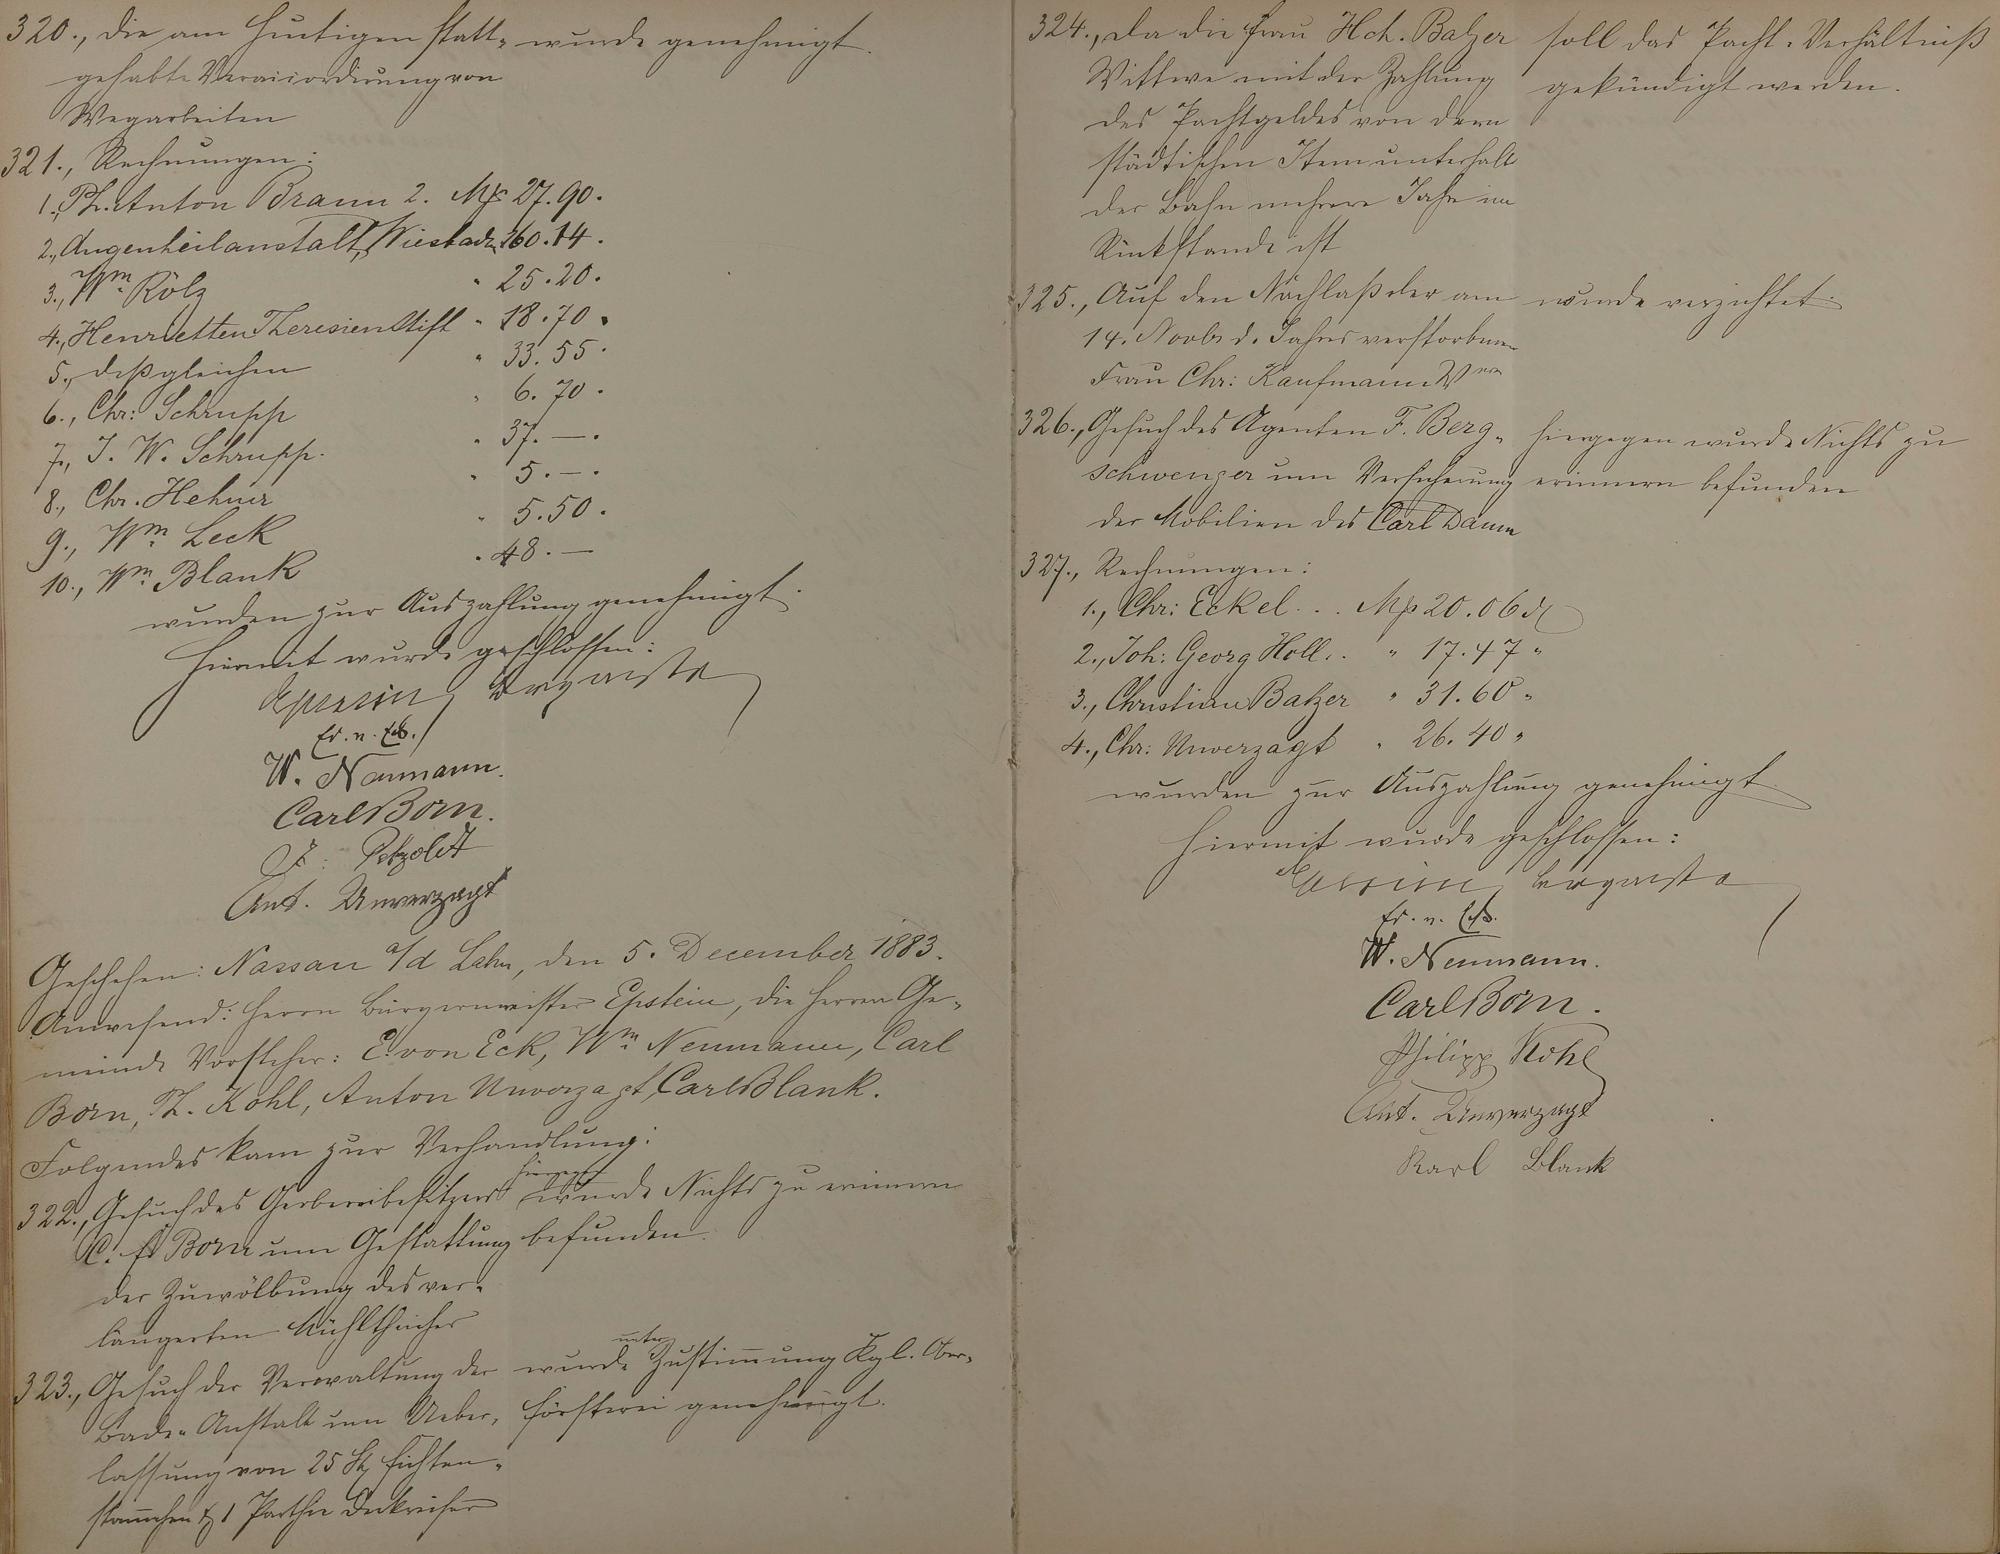 320., Die am heutigen statt- wurde genehmigt.
gehabte Veraccordirung von
Wegarbeiten
321., Rechnungen:
1., Ph. Anton Braun 2. Mk 27.90.
2., Augenheilanstalt, Wiesbaden 160.14.
3., Wm. Rölz " 25.20.
4., Henrietten Theresien Stift " 18.70.
5., deßgleichen " 33.55.
6., Chr: Schrupp " 6.70.
7., J. W. Schrupp. " 37.—.
8., Chr. Hehner " 5.—.
9., Wm. Leck " 5.50.
10., Wm. Blank " 48.—
wurden zur Auszahlung genehmigt.
Hiermit wurde geschlossen:
Epstein, Brgmstr
W. Neumann.
Carl Born.
Petzoldt
Ant. Unverzagt
Geschehen: Nassau a/d Lahn, den 5. December 1883.
Anwesend: Herrn Bürgermeister Epstein, die Herren Ge-
meinde Vorsteher: E. von Eck, Wm. Neumann, Carl
Born, Ph. Kohl, Anton Unverzagt, Carl Blank.
Folgendes kam zur Verhandlung:
322., Gesuch des Gerbereibesitzers hiergegen wurde Nichts zu erinnern
C. Fr Born um Gestattung befunden.
der Zuwölbung des ver-
längerten Mühlthiches
323., Gesuch der Verwaltung der wurde unter Zustimmung Kgl. Ober-
Bade-Anstalt um Ueber- försterei genehmigt.
lassung von 25 St. Fichten-
stämmchen & 1 Parthie Deckreiser
324., Da die Frau Hch. Balzer soll das Pacht-Verhältniß
Wittwe mit der Zahlung gekündigt werden.
des Pachtgeldes von dem
städtischen Item unterhalb
der Bahn mehrere Jahr im
Rückstande ist
325., Auf den Nachlaß der am wurde verzichtet.
14. Novbr d. Jahres verstorbenen
Frau Chr: Kaufmann Wwe
326., Gesuch des Agenten F. Berg- hiergegen wurde Nichts zu
schwenger um Versicherung erinnern befunden
der Mobilien des Carl Damm
327., Rechnungen:
1., Chr: Eckel . . . Mk 20.06 d
2., Joh: Georg Holl . . " 17.47 "
3., Christian Balzer " 31.60 "
4., Chr: Unverzagt " 26.40 "
wurden zur Auszahlung genehmigt.
Hiermit wurde geschlossen:
Epstein, Brgmstr
W. Neumann.
Carl Born.
Philipp Kohl
Ant. Unverzagt
Karl Blank